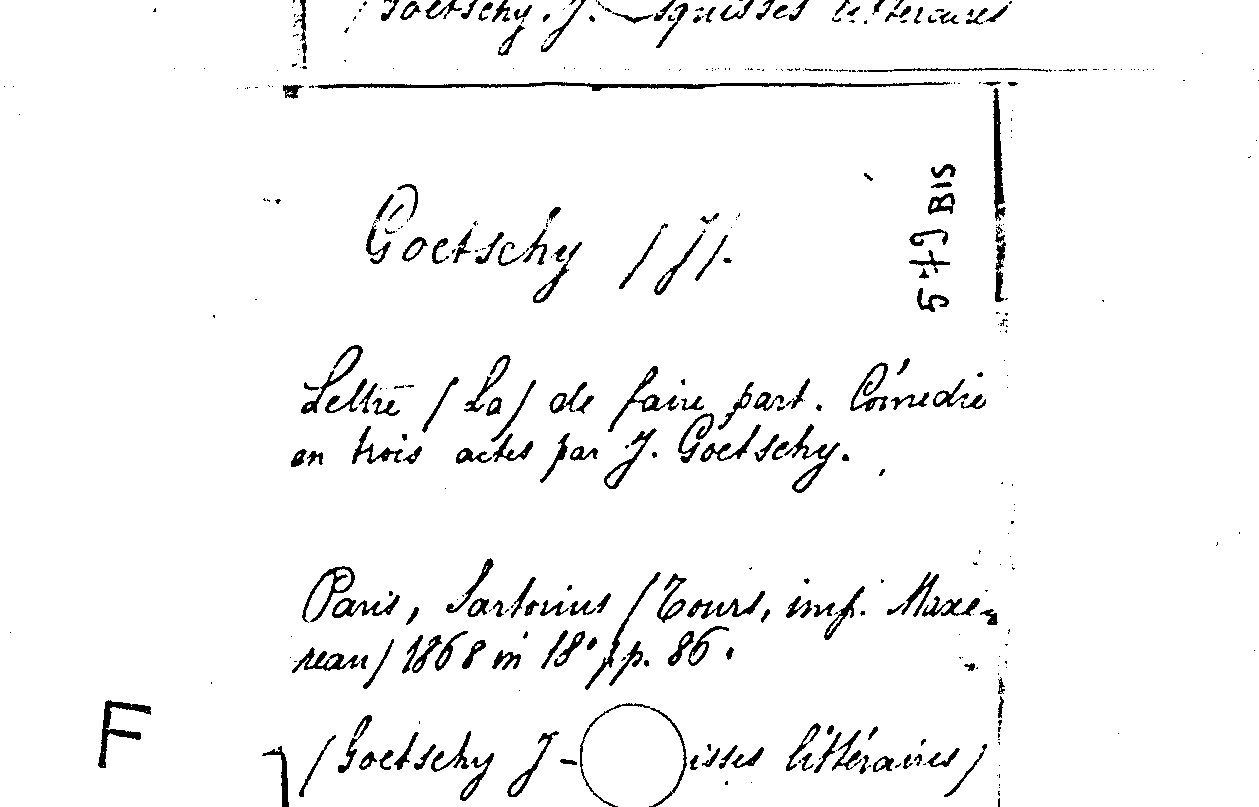 (Goetschy. J. Esquisses littéraires
5479 BIS
Goetschy (J).
Lettre (La) de faire part. Comédie
en trois actes par J. Goetschy.
Paris, Sartorius (Tours, imp. Maze-
reau) 1868 in 18° pp. 86.
F
(Goetschy J - isses littéraires)